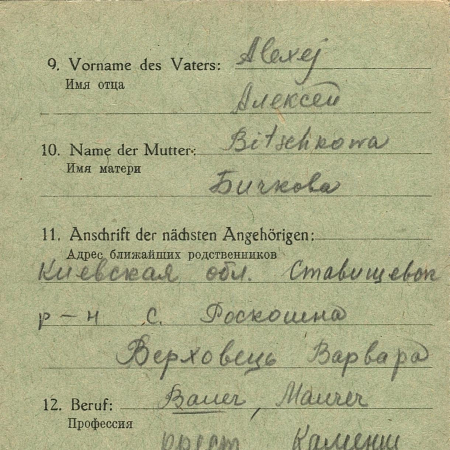 9. Vorname des Vaters: Alexej
Имя отца
Алексей
10. Name der Mutter: Bitschkowa
Имя матери
Бичкова
11. Anschrift der nächsten Angehörigen:
Адрес ближайших родственников
Киевская обл. Ставищевск
р-н с. Роскошна
Верховець Варвара
12. Beruf: Bauer, Maurer
Профессия
крест Каменщ